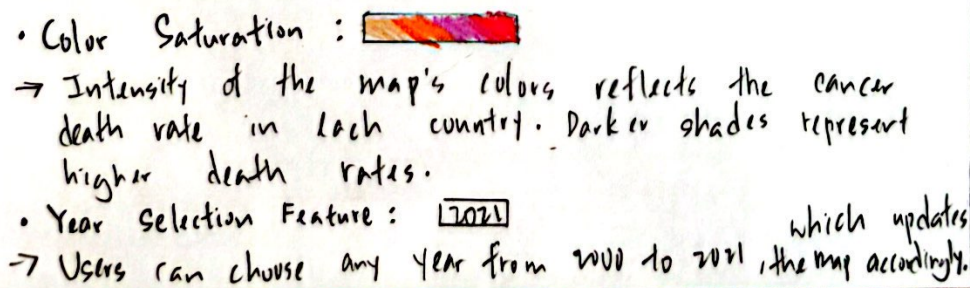 • Color Saturation :
→ Intensity of the map's colors reflects the cancer
death rate in each country. Darker shades represent
higher death rates.
• Year Selection Feature : 2021
→ Users can choose any year from 2000 to 2021, which updates the map accordingly.